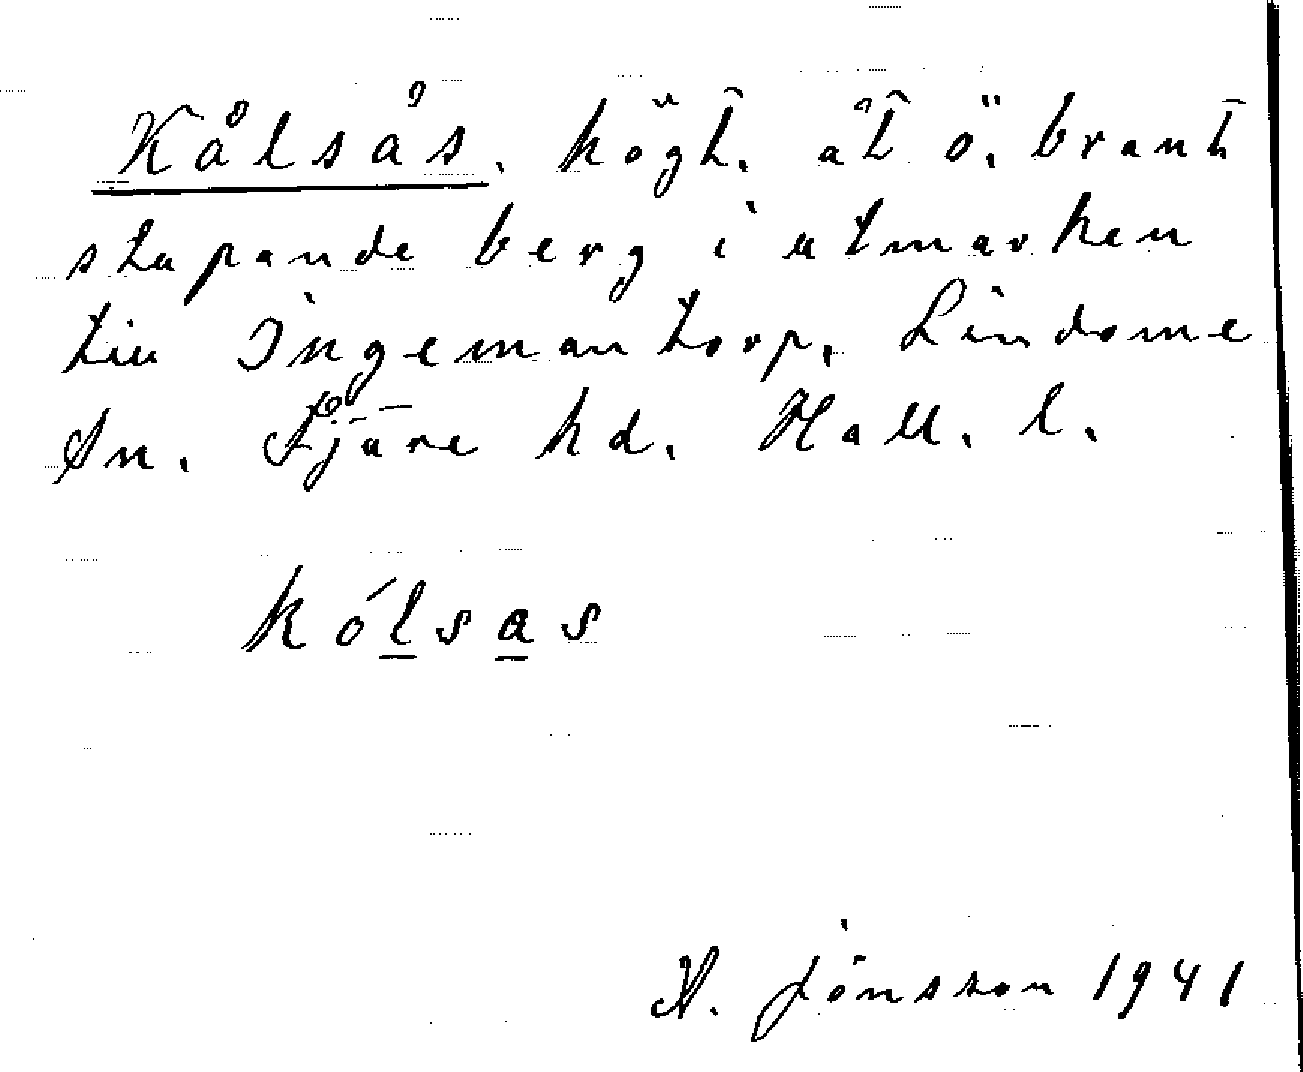 Kålsås, högt, åt ö. brant
stupande berg i utmarken
till Ingemantorp, Lindome
sn. Fjäre hd. Hall. l.
kólsas
H. Jönsson 1941